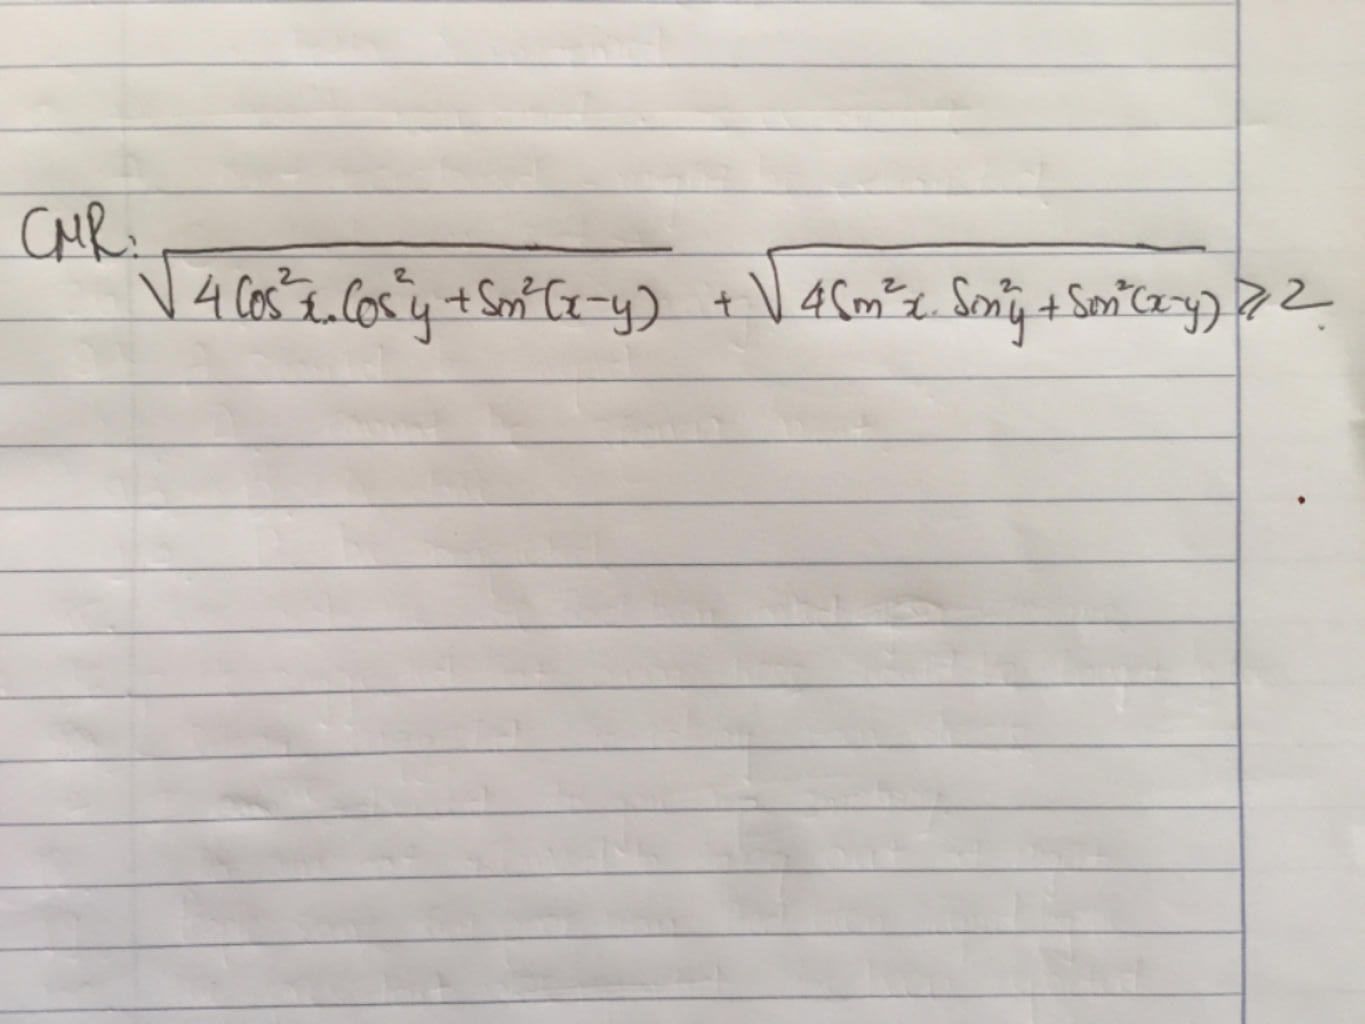 CMR: √(4 Cos²x. Cos²y + Sin²(x-y)) + √(4 Sin²x. Sin²y + Sin²(x-y)) ⩾ 2.